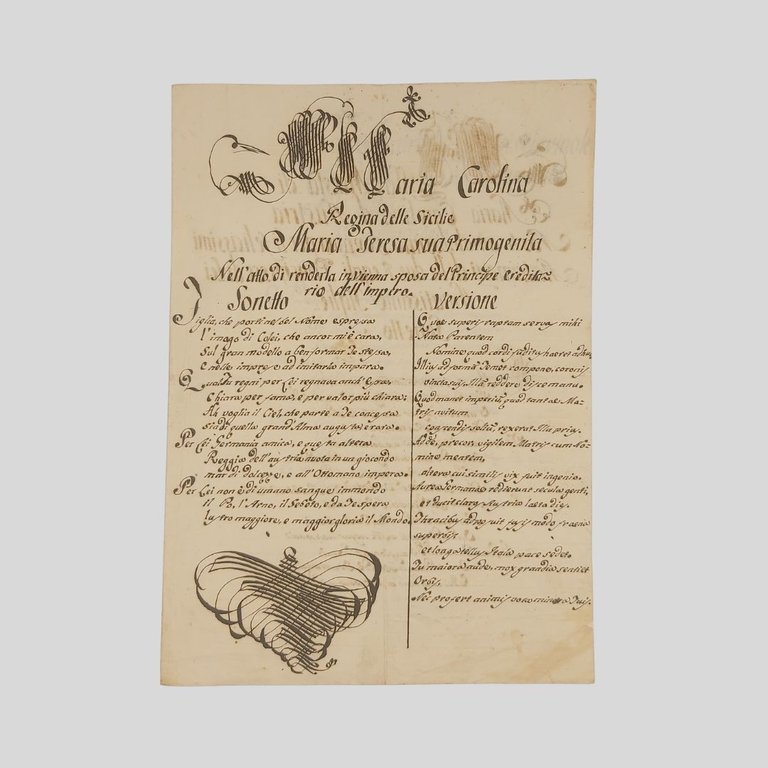 Maria Carolina
Regina delle Sicilie
Maria Teresa sua Primogenita
Nell'atto di renderla in Vienna sposa del Principe eredita=
rio dell'impero.
Sonetto
Figlia, che porti nel del Nome espressa
l'imago di Colei, che ancor mi è cara,
Sul gran modello a ben formar Te stessa,
e nelle imprese ad imitarlo impara.
Quattri regni per Lei regnava anch'Essa,
Chiara per fama, e per valor più chiara.
Ah voglia il Ciel, che parte a Te concessa
sia di quella grand'Alma augusta e rara.
Per Lei Germania amica, e questa altera
Reggia dell'austria nuota in un giocondo
mar di dolcezze, e all'Ottomano impera.
Per Lei non è di umano sangue immondo
il Po, l'Arno, il Sebeto, e da Te spera
lustro maggiore, e maggior gloria il Mondo.
Versione
Quae superis raptam servas mihi
Nata Parentem
Nomine quod cordi sadita haeret adhuc
ad formam Temet compone,
vinctas suis Illam reddere disce manu.
Quod manet imperii, quod tantae Ma=
tris avitum
rexerat Illa prius
Adde, precor, vigilem Matris cum No=
mine mentem,
altera cui similis vix fuit ingenio.
Aurea Germanae redierunt secula genti,
et ducit clara Austria laeta dies.
Thracibus fuit jussis modo fraena
superbis
et longa tellus Itala pace sedet.
Tu majora aude, mox grandia sentiet
Orbis
Nec profert animis vota minora Tuis.